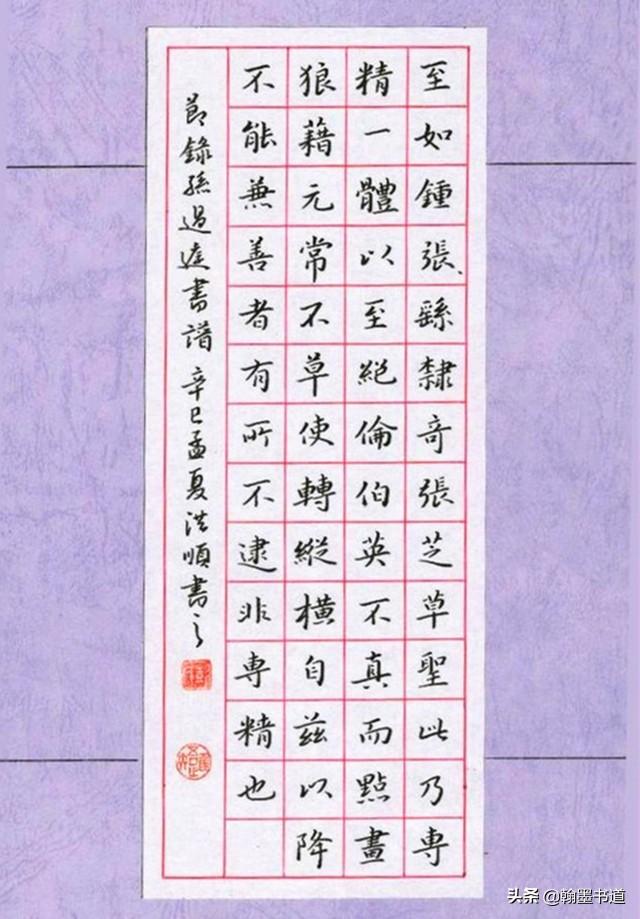 至如鍾張、繇隸奇張芝草聖此乃專
精一體以至絕倫伯英不真而點畫
狼藉元常不草使轉縱橫自茲以降
不能兼善者有所不逮非專精也
節錄孫過庭書譜 辛巳孟夏洪順書之
头条 @翰墨书道